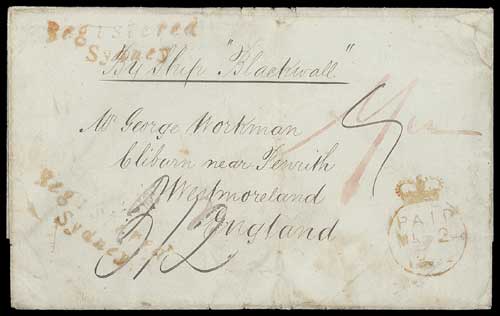 Registered
Sydney
By Ship "Blackwall"
Mr George Workman
Clibarn near Penrith
Westmoreland
England
Registered
Sydney
3/2
PAID
2